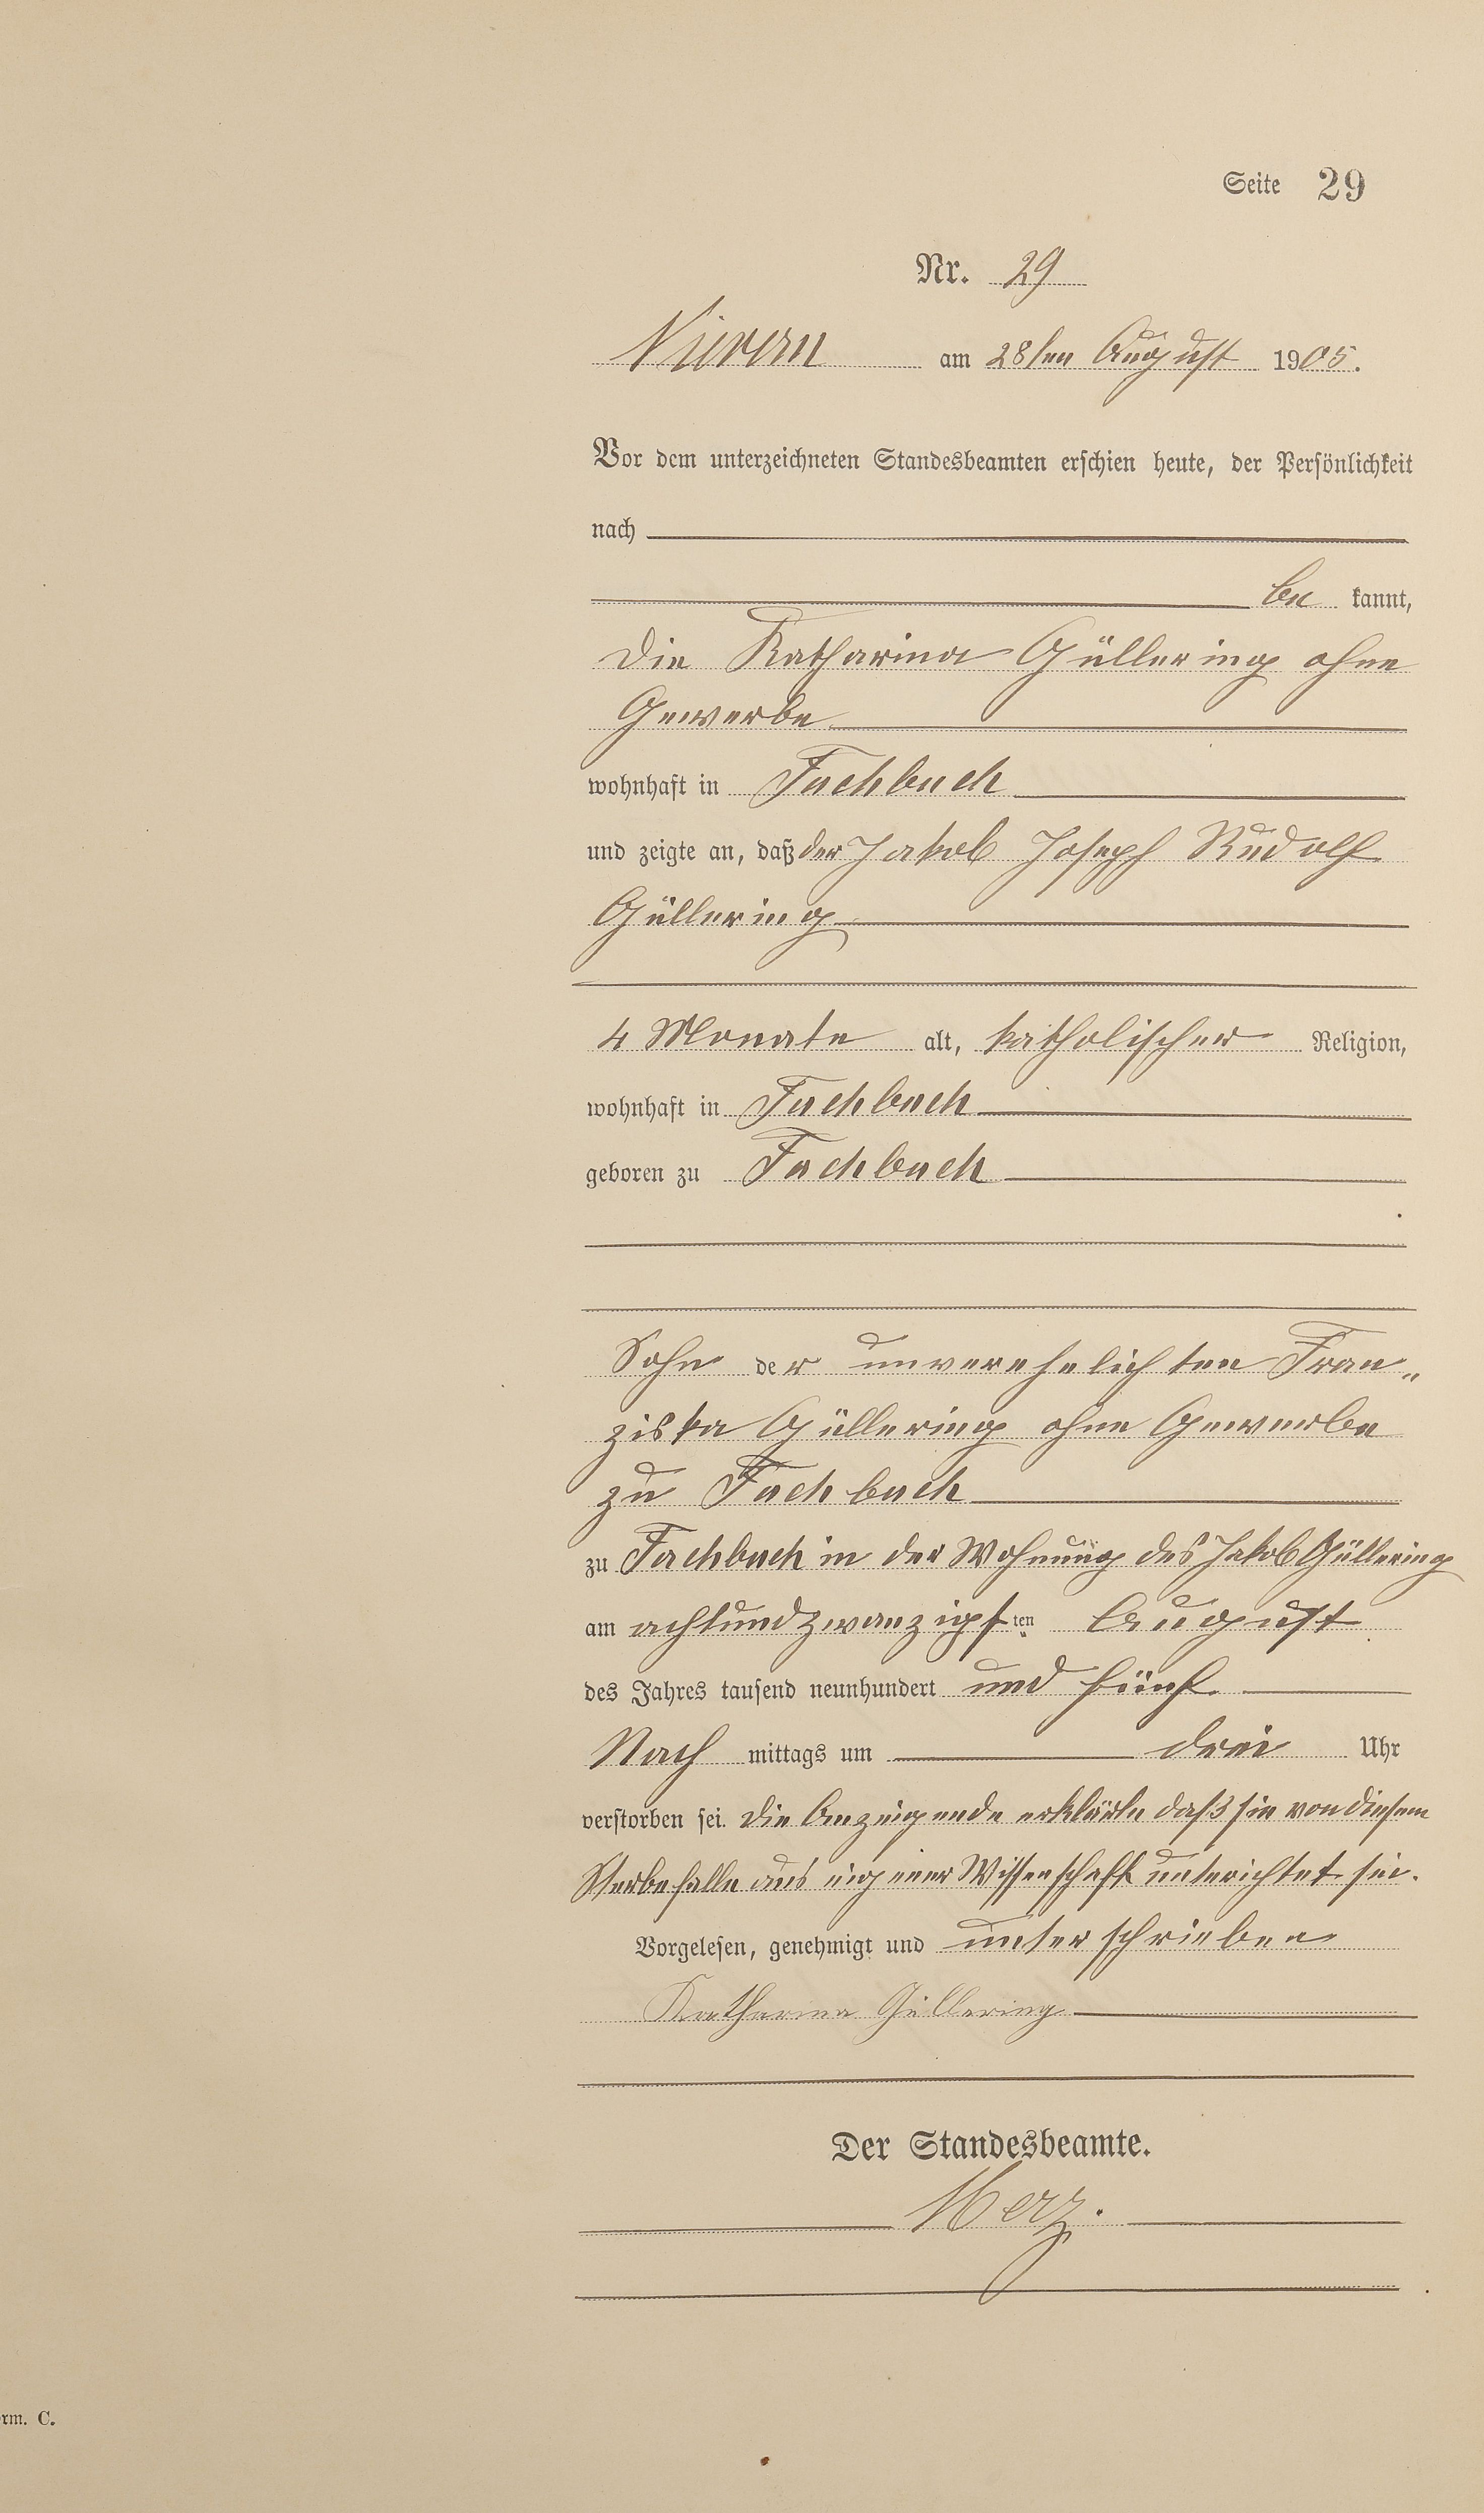 Seite 29
Nr. 29
Nievern am 28ten August 1905.
Vor dem unterzeichneten Standesbeamten erschien heute, der Persönlichkeit
nach
be kannt,
die Katharina Güllering ohne
Gewerbe
wohnhaft in Fachbach
und zeigte an, daß der Jakob Joseph Rudolf
Güllering
4 Monate alt, katholischer Religion,
wohnhaft in Fachbach
geboren zu Fachbach
Sohn der unverehelichten Fran„
ziska Güllering ohne Gewerbe
zu Fachbach
zu Fachbach in der Wohnung des Jakob Güllering
am achtundzwanzigsten August
des Jahres tausend neunhundert und fünf
Nach mittags um drei Uhr
verstorben sei. Die Anzeigende erklärte daß sie von diesem
Sterbefalle aus eigener Wissenschaft unterichtet sei.
Vorgelesen, genehmigt und unterschrieben
Katharina Güllering
Der Standesbeamte.
Merz.
rm. C.